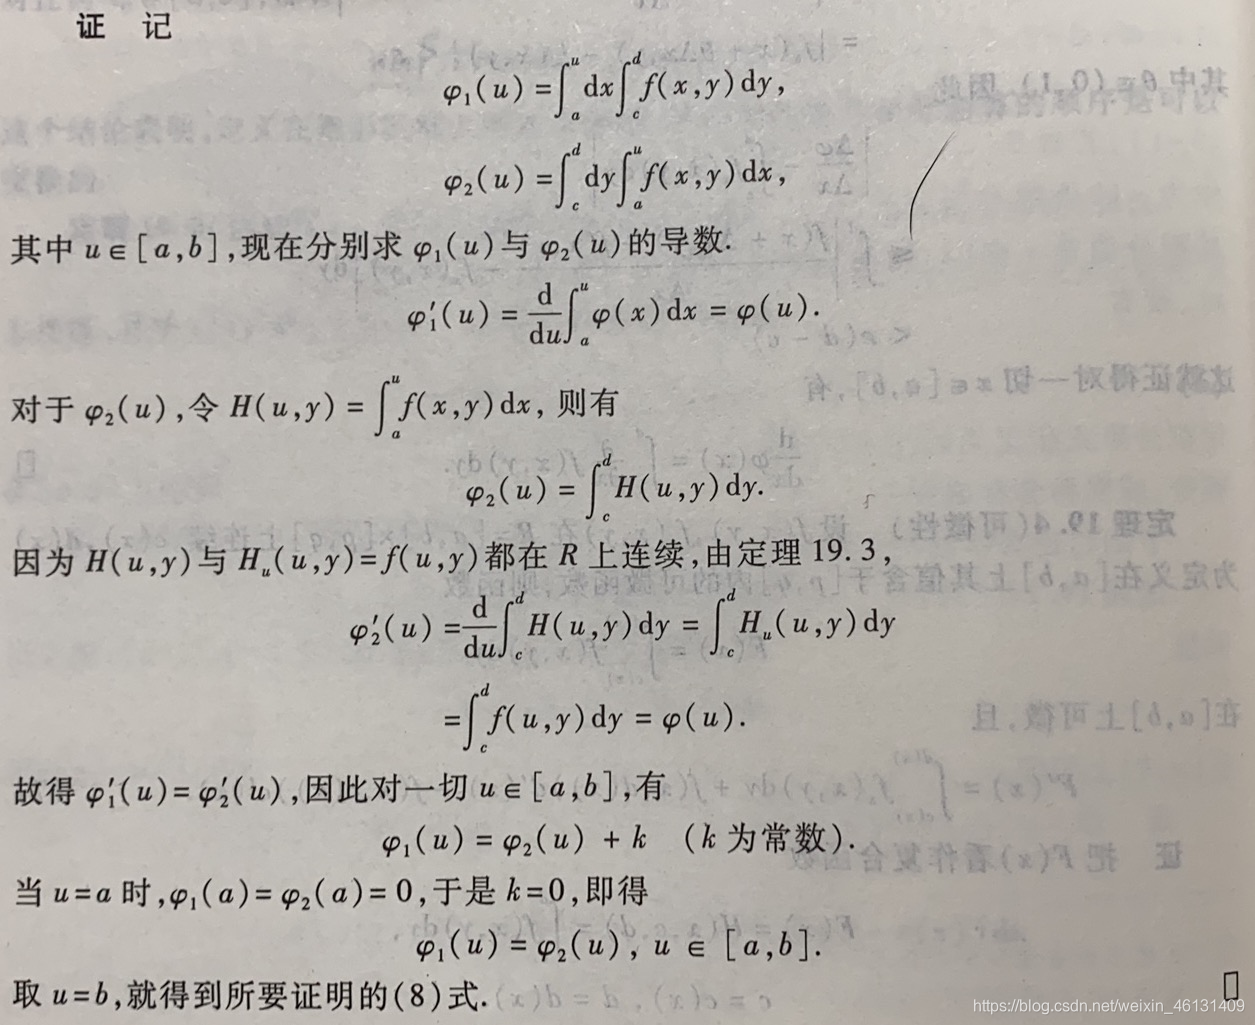 证 记
φ₁(u) = ∫ₐᵘ dx ∫_c^d f(x,y) dy,
φ₂(u) = ∫_c^d dy ∫ₐᵘ f(x,y) dx,
其中 u∈[a,b],现在分别求 φ₁(u)与 φ₂(u)的导数.
φ₁′(u) = d/du ∫ₐᵘ φ(x) dx = φ(u).
对于 φ₂(u),令 H(u,y) = ∫ₐᵘ f(x,y) dx, 则有
φ₂(u) = ∫_c^d H(u,y) dy.
因为 H(u,y)与 Hᵤ(u,y)=f(u,y)都在 R 上连续,由定理 19.3,
φ₂′(u) = d/du ∫_c^d H(u,y) dy = ∫_c^d Hᵤ(u,y) dy
= ∫_c^d f(u,y) dy = φ(u).
故得 φ₁′(u)= φ₂′(u),因此对一切 u∈[a,b],有
φ₁(u) = φ₂(u) + k (k 为常数).
当 u=a 时,φ₁(a)= φ₂(a)= 0,于是 k=0,即得
φ₁(u) = φ₂(u), u ∈ [a,b].
取 u=b,就得到所要证明的(8)式. □
https://blog.csdn.net/weixin_46131409